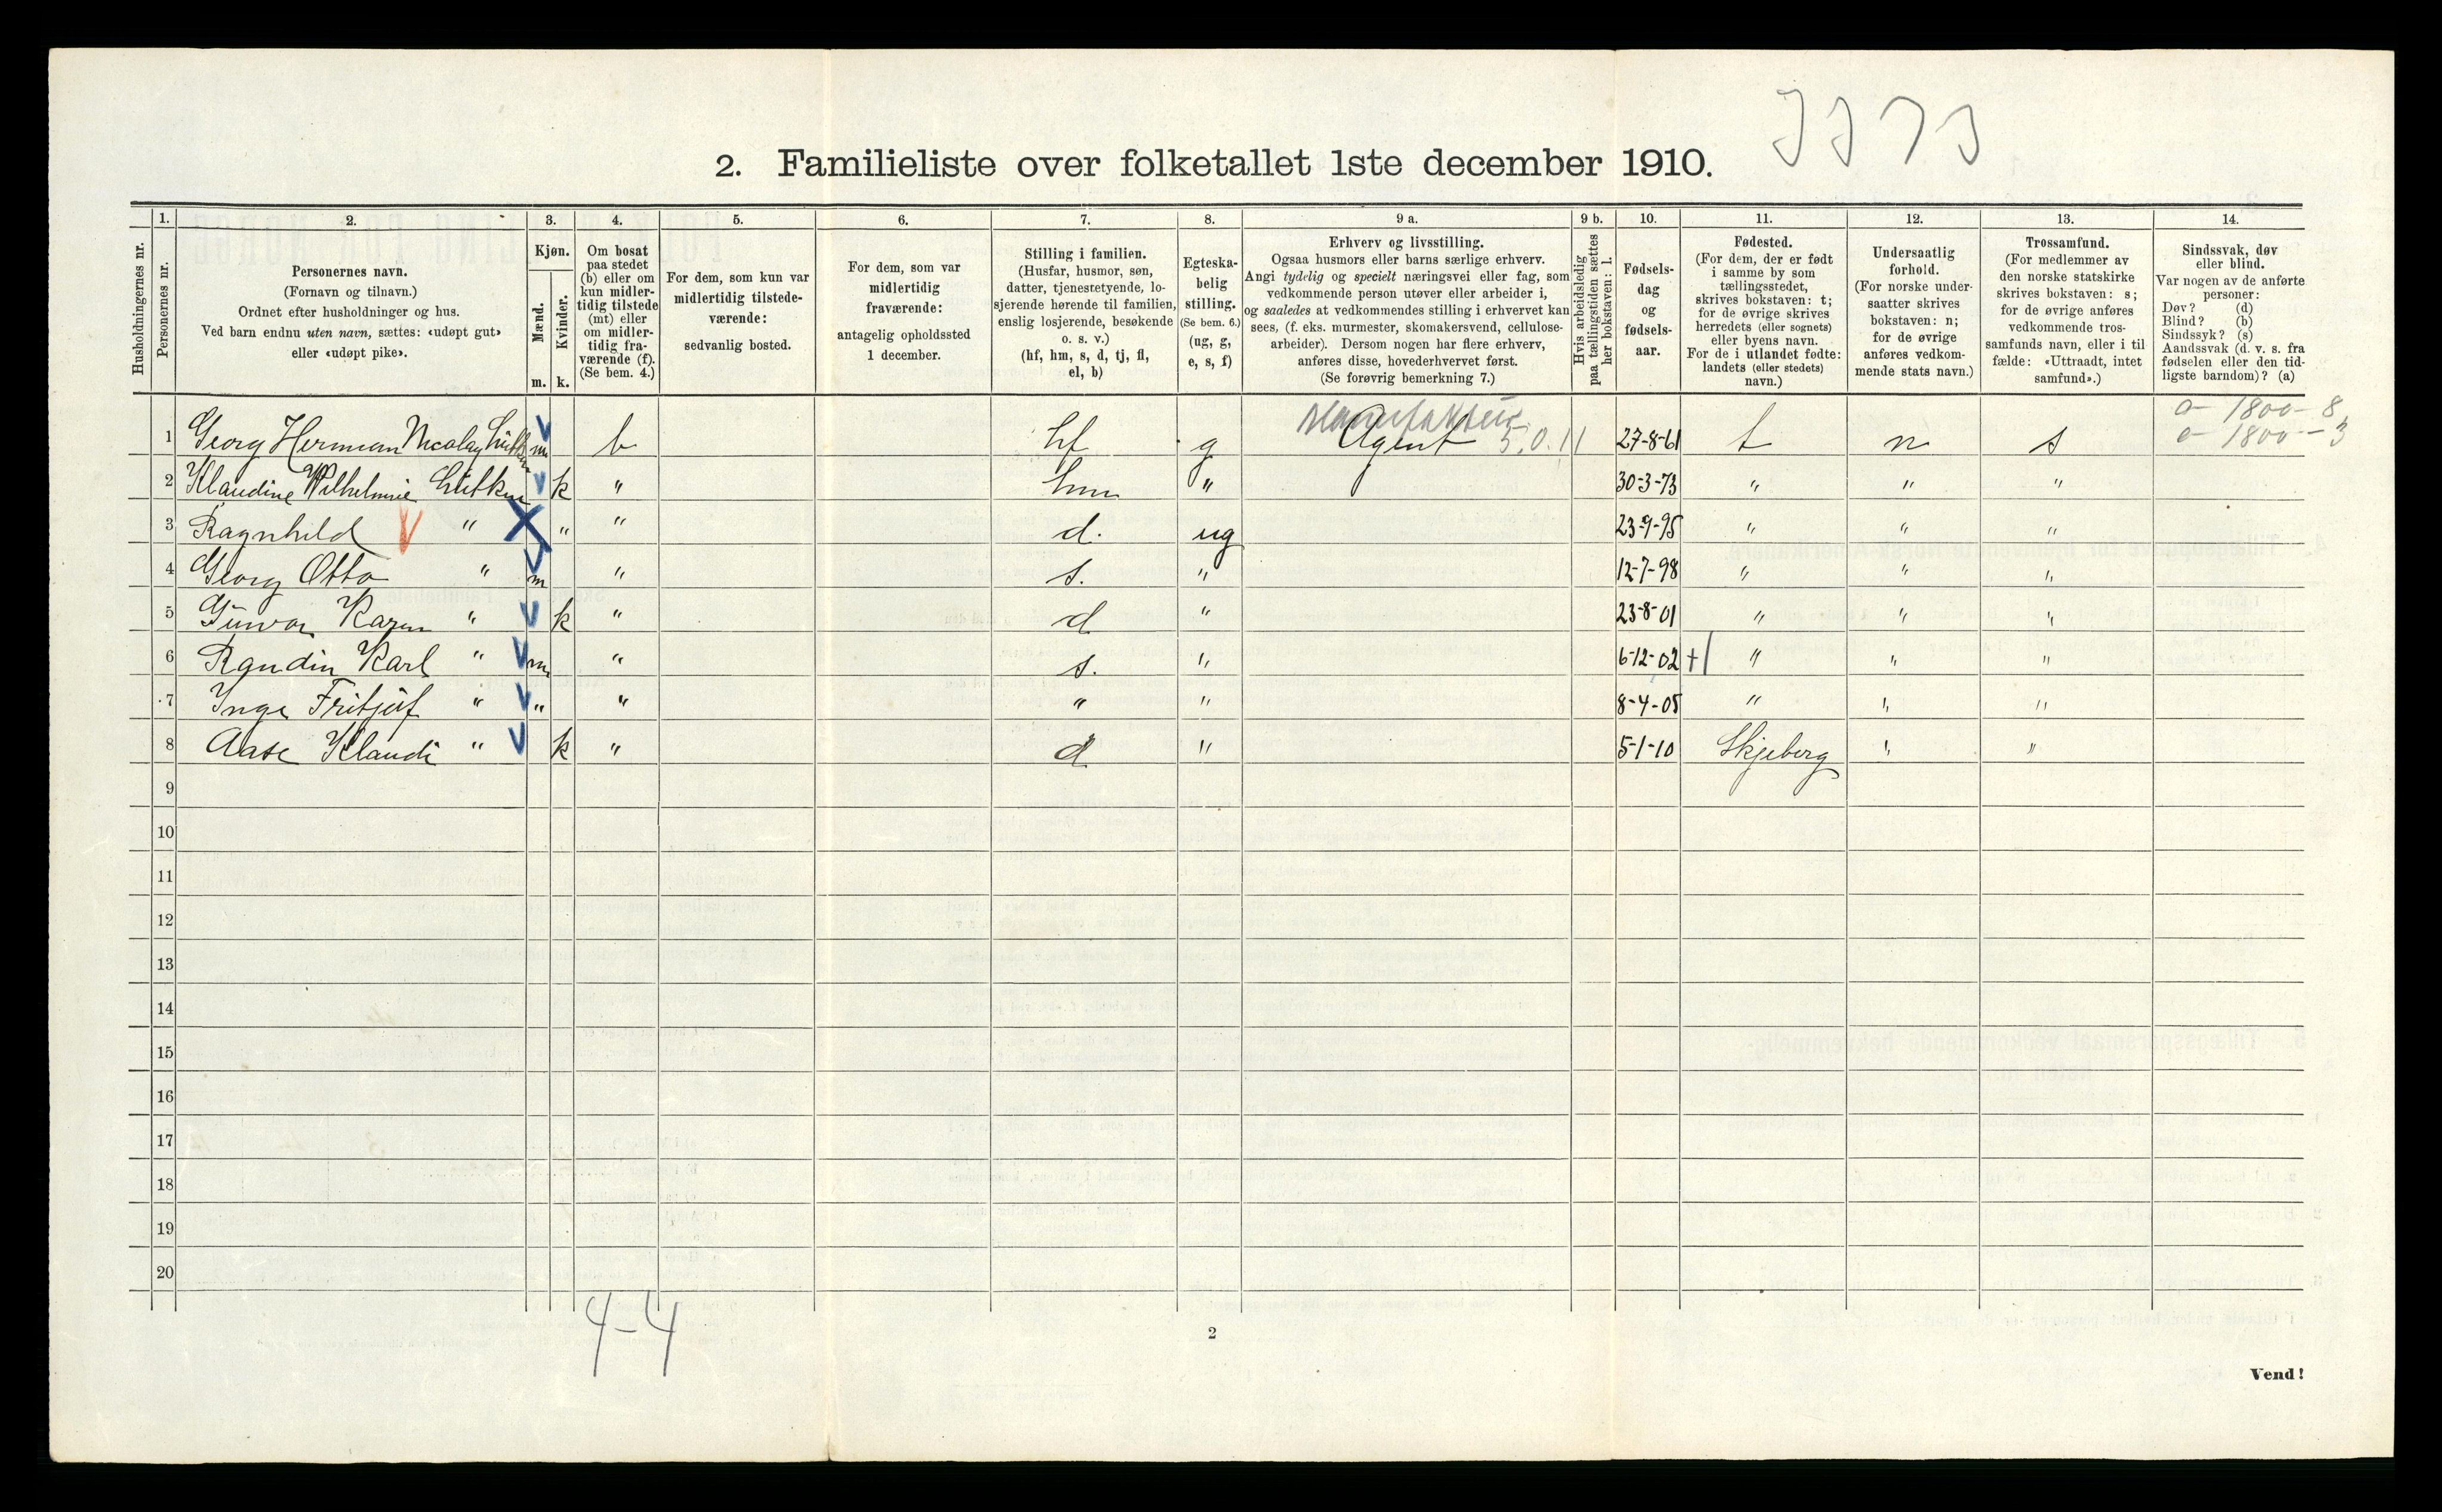 2. Familieliste over folketallet 1ste december 1910.
Husholdningernes nr.
1. Personernes nr.
2. Personernes navn.
(Fornavn og tilnavn.)
Ordnet efter husholdninger og hus.
Ved barn endnu uten navn, sættes: «udøpt gut»
eller «udøpt pike».
3. Kjøn.
Mænd. m.
Kvinder. k.
4. Om bosat
paa stedet
(b) eller om
kun midler-
tidig tilstede
(mt) eller
om midler-
tidig fra-
værende (f).
(Se bem. 4.)
5. For dem, som kun var
midlertidig tilstede-
værende:
sedvanlig bosted.
6. For dem, som var
midlertidig
fraværende:
antagelig opholdssted
1 december.
7. Stilling i familien.
(Husfar, husmor, søn,
datter, tjenestetyende, lo-
sjerende hørende til familien,
enslig losjerende, besøkende
o. s. v.)
(hf, hm, s, d, tj, fl,
el, b)
8. Egteska-
belig
stilling.
(Se bem. 6.)
(ug, g,
e, s, f)
9 a. Erhverv og livsstilling.
Ogsaa husmors eller barns særlige erhverv.
Angi tydelig og specielt næringsvei eller fag, som
vedkommende person utøver eller arbeider i,
og saaledes at vedkommendes stilling i erhvervet kan
sees, (f. eks. murmester, skomakersvend, cellulose-
arbeider). Dersom nogen har flere erhverv,
anføres disse, hovederhvervet først.
(Se forøvrig bemerkning 7.)
9 b. Hvis arbeidsledig
paa tællingstiden sættes
her bokstaven: l.
10. Fødsels-
dag
og
fødsels-
aar.
11. Fødested.
(For dem, der er født
i samme by som
tællingsstedet,
skrives bokstaven: t;
for de øvrige skrives
herredets (eller sognets)
eller byens navn.
For de i utlandet fødte:
landets (eller stedets)
navn.)
12. Undersaatlig
forhold.
(For norske under-
saatter skrives
bokstaven: n;
for de øvrige
anføres vedkom-
mende stats navn.)
13. Trossamfund.
(For medlemmer av
den norske statskirke
skrives bokstaven: s;
for de øvrige anføres
vedkommende tros-
samfunds navn, eller i til
fælde: «Uttraadt, intet
samfund».)
14. Sindssvak, døv
eller blind.
Var nogen av de anførte
personer:
Døv? (d)
Blind? (b)
Sindssyk? (s)
Aandssvak (d. v. s. fra
fødselen eller den tid-
ligste barndom)? (a)
o- 1800 - 8
e- 1800 - 3
Manufaktur
1 Georg Herman Nicolay m b hf g Agent 5.0.11 27-8-61 t n s
2 Klaudine Wilhelmine k " hm " 30-3-73 " " "
3 Ragnhild " " " d. ug 23-9-95 " " "
4 Georg Otto " m " s. " 12-7-98 " " "
5 Gunvor Karen " k " d " 23-8-01 " " "
6 Randin Karl " m " s. " 6-12-02 +| " " "
7 Inge Fritjof " " " " " 8-4-05 " " "
8 Aase Klaudi " k " d " 5-1-10 Skjeberg " "
9
10
11
12
13
14
15
16
17
18
19
20
4-4
2
Vend!